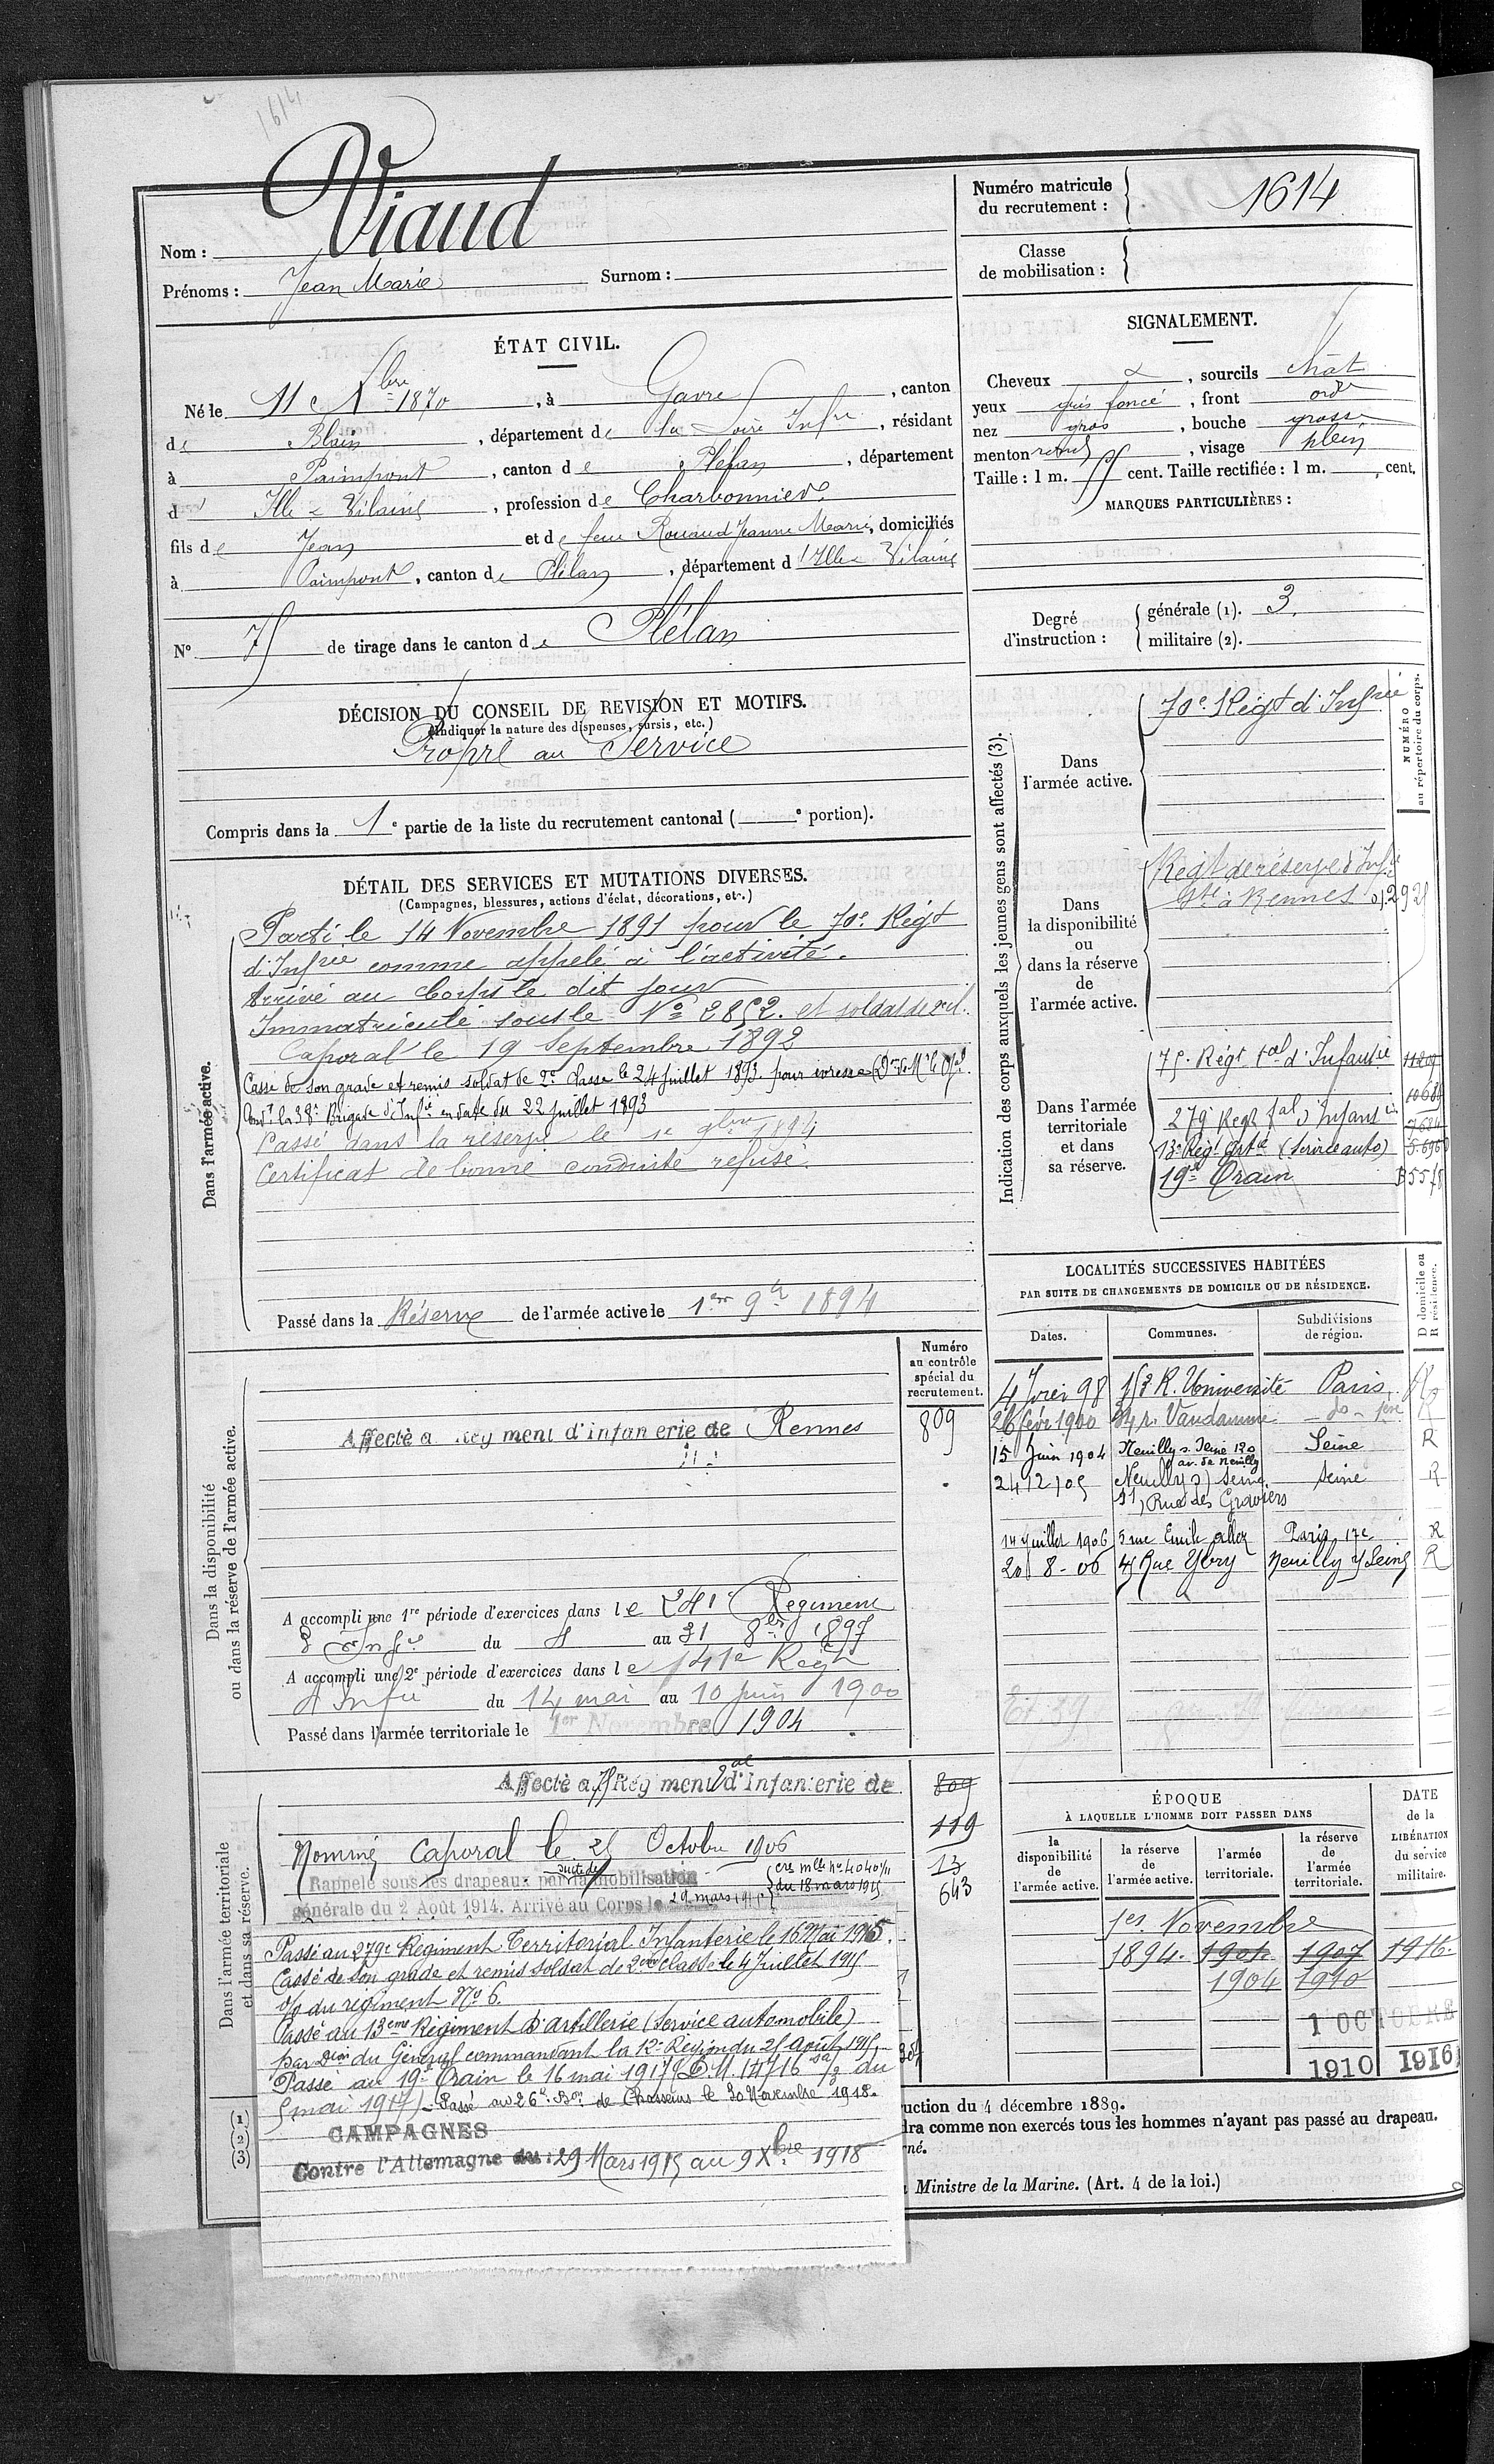 1614
Nom : Viaud
Prénoms : Jean Marie Surnom :
Numéro matricule du recrutement : 1614
Classe de mobilisation :
ÉTAT CIVIL.
Né le 11 Xbre 1870, à Gavre, canton
de Blain, département de la Loire Infre, résidant
à Paimpont, canton de Plélan, département
d'Ille & Vilaine, profession de Charbonnier
fils de Jean et de feue Rouaud Jeanne Marie, domiciliés
à Paimpont, canton de Plélan, département d'Ille & Vilaine
No 75 de tirage dans le canton de Plélan
SIGNALEMENT.
Cheveux &, sourcils chât
yeux gris foncé, front ordre
nez gros, bouche grosse
menton rond, visage plein
Taille : 1 m. 55 cent. Taille rectifiée : 1 m. , cent.
MARQUES PARTICULIÈRES :
Degré d'instruction : générale (1). 3.
militaire (2).
DÉCISION DU CONSEIL DE REVISION ET MOTIFS.
(Indiquer la nature des dispenses, sursis, etc.)
Propre au Service
Compris dans la 1e partie de la liste du recrutement cantonal ( e portion).
DÉTAIL DES SERVICES ET MUTATIONS DIVERSES.
(Campagnes, blessures, actions d'éclat, décorations, etc.)
Dans l'armée active.
Parti le 14 Novembre 1891 pour le 70e Régt
d'Infrie comme appelé à l'activité.
Arrivé au Corps le dit jour
Immatriculé sous le No 2852. et soldat de 2e cl.
Caporal le 19 Septembre 1892
Cassé de son grade et remis soldat de 2e classe le 24 Juillet 1893 pour ivresse (Don de Mr le Gal
Comt la 38e Brigade d'Infie en date du 22 juillet 1893
Passé dans la réserve le 1e 9bre 1894
Certificat de bonne conduite refusé.
Passé dans la Réserve de l'armée active le 1er 9bre 1894
Indication des corps auxquels les jeunes gens sont affectés (3).
NUMÉRO au répertoire du corps.
Dans l'armée active.
70e Régt d'Infrie
Dans la disponibilité ou dans la réserve de l'armée active.
Régt de réserve d'Infie
Gte à Rennes
Dans l'armée territoriale et dans sa réserve.
75e Régt tal d'Infanterie
279e Regt tal d'Infanie
13e Régt Artie (Service auto)
19e Train
LOCALITÉS SUCCESSIVES HABITÉES
PAR SUITE DE CHANGEMENTS DE DOMICILE OU DE RÉSIDENCE.
Dates. Communes. Subdivisions de région. D domicile ou R résidence.
4 98 153 R. Université Paris R
26 févr 1900 r. Vandamme - do - R
15 Juin 1904 Neuilly s. Seine 120 av. de Neuilly Seine R
24 12 05 Neuilly s/ Seine Seine R
11, Rue des Graviers
14 Juillet 1906 5 rue Emile Allez Paris 17e R
20 8-06 45 Rue Ybry Neuilly s/ Seine R
Dans la disponibilité ou dans la réserve de l'armée active.
Numéro au contrôle spécial du recrutement.
Affecté a Régiment d'infanterie de Rennes 809
A accompli une 1re période d'exercices dans le 241e Régiment
d'Infie du 4 au 31 8bre 1897
A accompli une 2e période d'exercices dans le 141e Régt
d'Infie du 14 mai au 10 juin 1900
Passé dans l'armée territoriale le 1er Novembre 1904.
Dans l'armée territoriale et dans sa réserve.
Affecté au 75 Régiment tal d'infanterie de 809
119
Nommé Caporal le 25 Octobre 1906
13
643
Rappelé sous les drapeaux par suite de la mobilisation (cre mlle no 4040 1/11
générale du 2 Août 1914. Arrivé au Corps le 29 mars 1915 du 18 mars 1915
Passé au 279e Régiment Territorial Infanterie le 16 Mai 1915.
Cassé de son grade et remis soldat de 2eme Classe le 4 Juillet 1915
o/o du régiment No 6.
Passé au 13eme Régiment d'artillerie (Service automobile)
par Dion du Général commandant la 12e Région du 25 Août 1915
Passé au 19e Train le 16 mai 1917 (D.M. 14716 du
5 mai 1917) - Passé au 26e Bon de Chasseurs le 30 Novembre 1918.
CAMPAGNES
Contre l'Allemagne du : 29 Mars 1915 au 9 Xbre 1918
ÉPOQUE
À LAQUELLE L'HOMME DOIT PASSER DANS
la disponibilité de l'armée active. la réserve de l'armée active. l'armée territoriale. la réserve de l'armée territoriale.
DATE de la LIBÉRATION du service militaire.
1er Novembre
1894. 1901 1907 1916.
1904 1910
1 OCTOBRE
1910 1916
(1)
(2)
(3)
uction du 4 décembre 1889.
dra comme non exercés tous les hommes n'ayant pas passé au drapeau.
né.
Ministre de la Marine. (Art. 4 de la loi.)